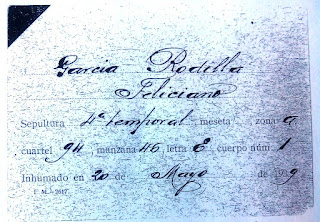 Garcia Rodilla
Feliciano
Sepultura 4ª temporal meseta zona a
cuartel 94 manzana 46 letra E cuerpo núm. 1
Inhumado en 20 de Mayo de 19 9
F. M.-2617.